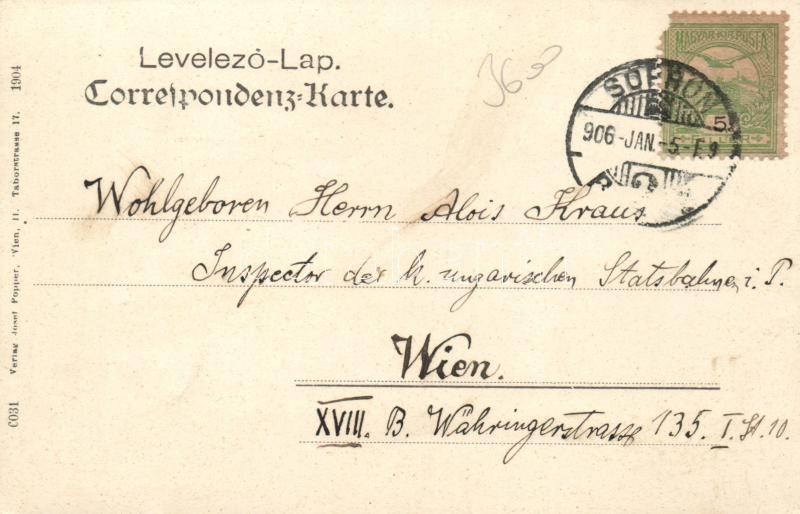 Levelező-Lap.
Correspondenz-Karte.
363
MAGYAR KIR. POSTA
5
SOPRON
906-JAN.-5-
Wohlgeboren Herrn Alois Kraus
Inspector der k. ungarischen Statsbahnen i. P.
Wien.
XVIII. B. Währingerstrasse 135. I. St. 10.
C031 Verlag Josef Popper, Wien, II. Taborstrasse 17. 1904